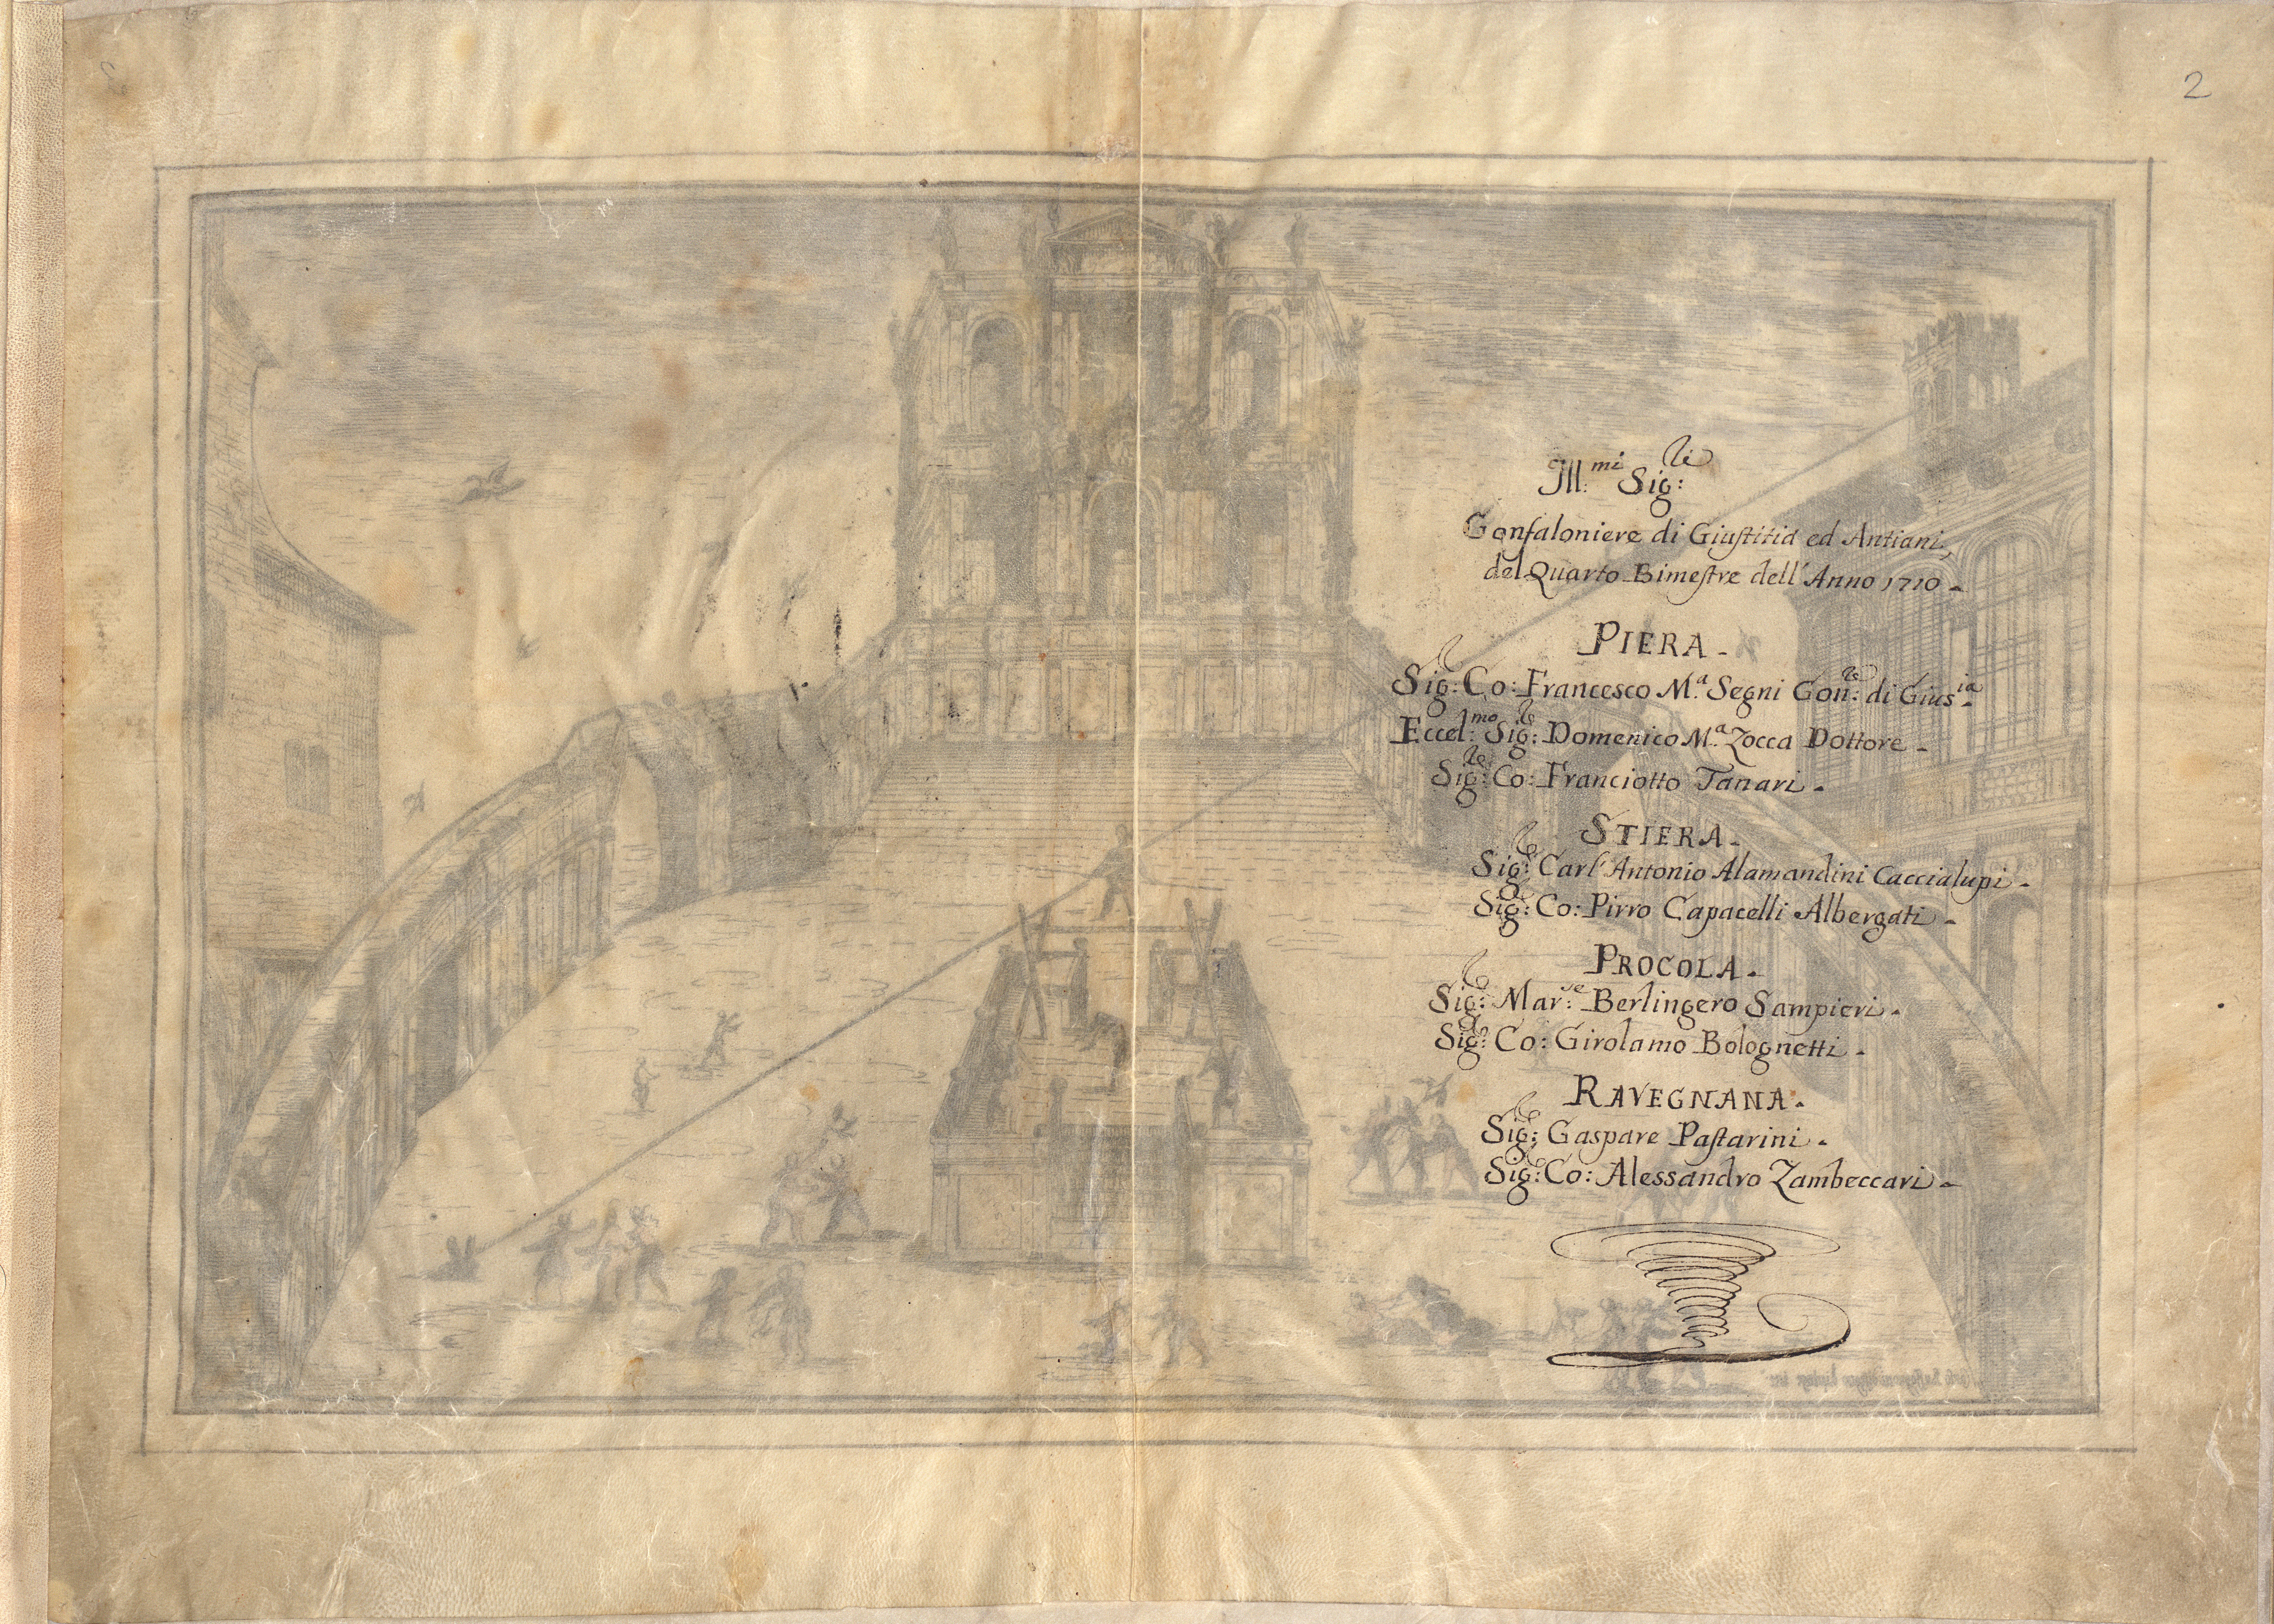 2
Ill.mi Sig:ri
Gonfaloniere di Giustitia ed Antiani,
del Quarto Bimestre dell'Anno 1710.
PIERA.
Sig:r Co: Francesco M.a Segni Gon:re di Gius.ia
Eccel:mo Sig:r Domenico M.a Zocca Dottore.
Sig:r Co: Franciotto Tanari.
STIERA.
Sig:r Carl'Antonio Alamandini Caccialupi.
Sig:r Co: Pirro Capacelli Albergati.
PROCOLA.
Sig:r Mar:se Berlingero Sampieri.
Sig:r Co: Girolamo Bolognetti.
RAVEGNANA.
Sig:r Gaspare Pastarini.
Sig:r Co: Alessandro Zambeccari.